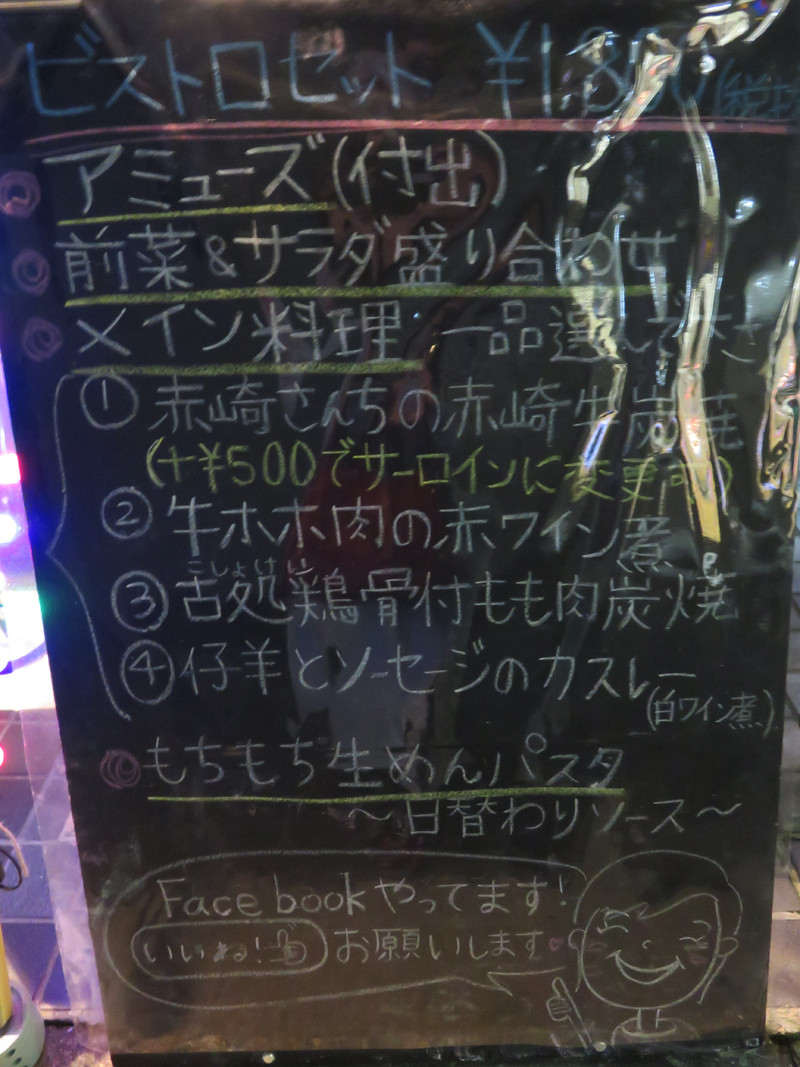 ビストロセット ¥1,800(税抜
アミューズ(付出)
前菜&サラダ盛り合わせ
メイン料理 一品選んで下さ
①赤崎さんちの赤崎牛炭焼
(+¥500でサーロインに変更可)
②牛ホホ肉の赤ワイン煮
こしょけい
③古処鶏骨付もも肉炭焼
④仔羊とソーセージのカスレー
(白ワイン煮)
もちもち生めんパスタ
〜日替わりソース〜
Face bookやってます!
いいね! お願いします